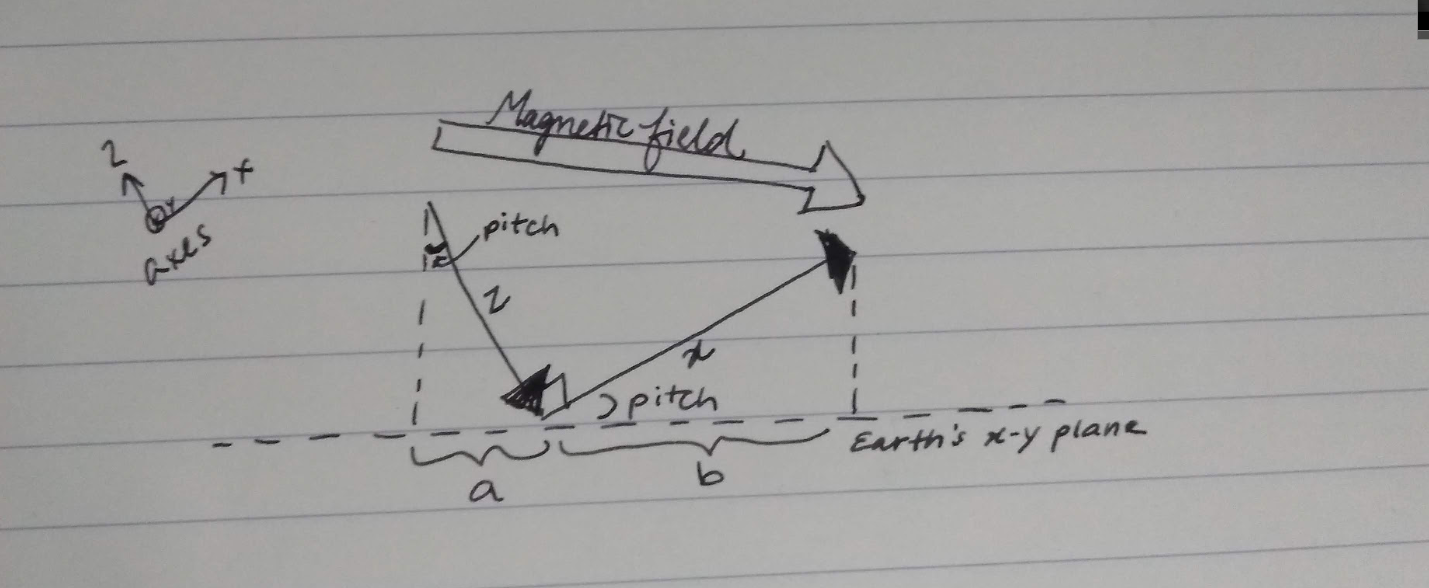 Magnetic field
z
x
y
axes
pitch
z
x
pitch
Earth's x-y plane
a
b